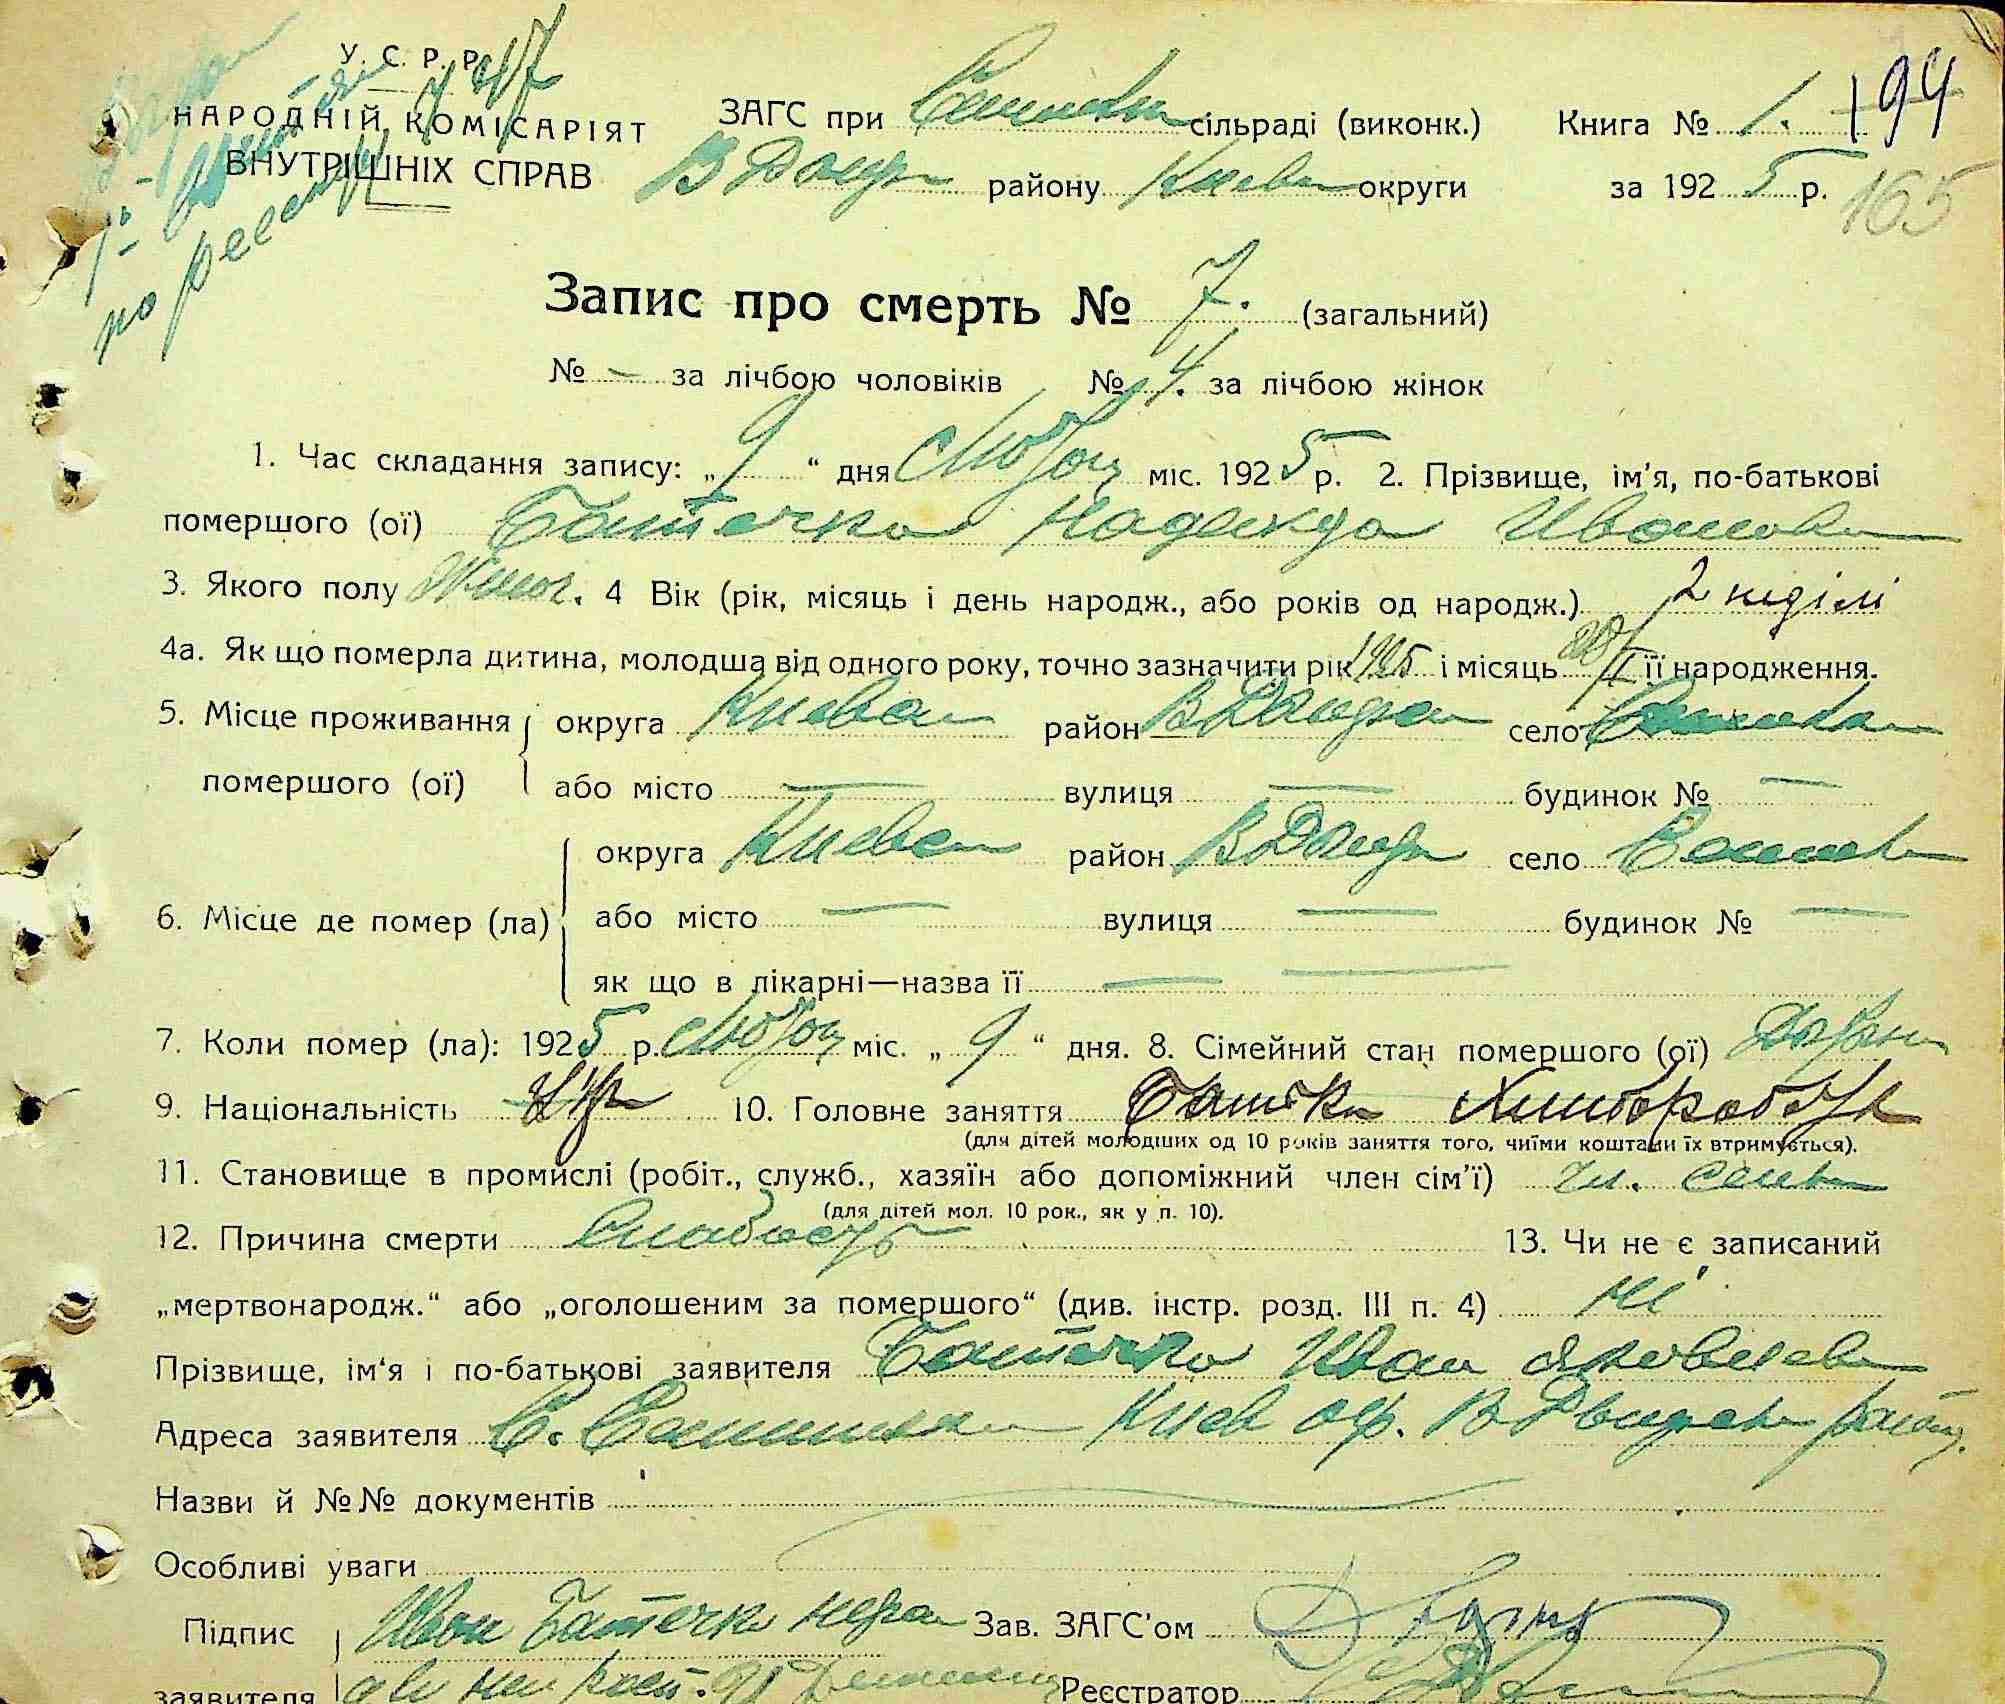 У. С. Р. Р.
НАРОДНІЙ КОМІСАРІЯТ
ВНУТРІШНІХ СПРАВ
по реестру
ЗАГС при сільраді (виконк.)
району Киев округи
Книга № 1. 194
за 1925 р. 165
Запис про смерть № 7. (загальний)
№ – за лічбою чоловіків № 4. за лічбою жінок
1. Час складання запису: „ 9 “ дня Лютого міс. 1925 р. 2. Прізвище, ім'я, по-батькові
помершого (ої) Батечко Надежда Ивановна
3. Якого полу Жіноч. 4 Вік (рік, місяць і день народж., або років од народж.) 2 неділі
4а. Як що померла дитина, молодша від одного року, точно зазначити рік 1925 і місяць її народження.
5. Місце проживання помершого (ої) округа Киев район село
або місто — вулиця — будинок № —
6. Місце де помер (ла) округа Киев район село
або місто — вулиця — будинок № —
як що в лікарні—назва її — —
7. Коли помер (ла): 1925 р. Лютого міс. „ 9 “ дня. 8. Сімейний стан помершого (ої)
9. Національність Укр 10. Головне заняття Батько Хлібороб
(для дітей молодших од 10 років заняття того, чиїми коштами їх втримується).
11. Становище в промислі (робіт., служб., хазяїн або допоміжний член сім'ї) чл. семьи
(для дітей мол. 10 рок., як у п. 10).
12. Причина смерти Слабость 13. Чи не є записаний
„мертвонародж.“ або „оголошеним за помершого“ (див. інстр. розд. III п. 4) ні
Прізвище, ім'я і по-батькові заявителя Батечко Иван Яковлев
Адреса заявителя С. Киев окр.
Назви й №№ документів
Особливі уваги
Підпис Иван Батечко Зав. ЗАГС'ом
заявителя Реєстратор